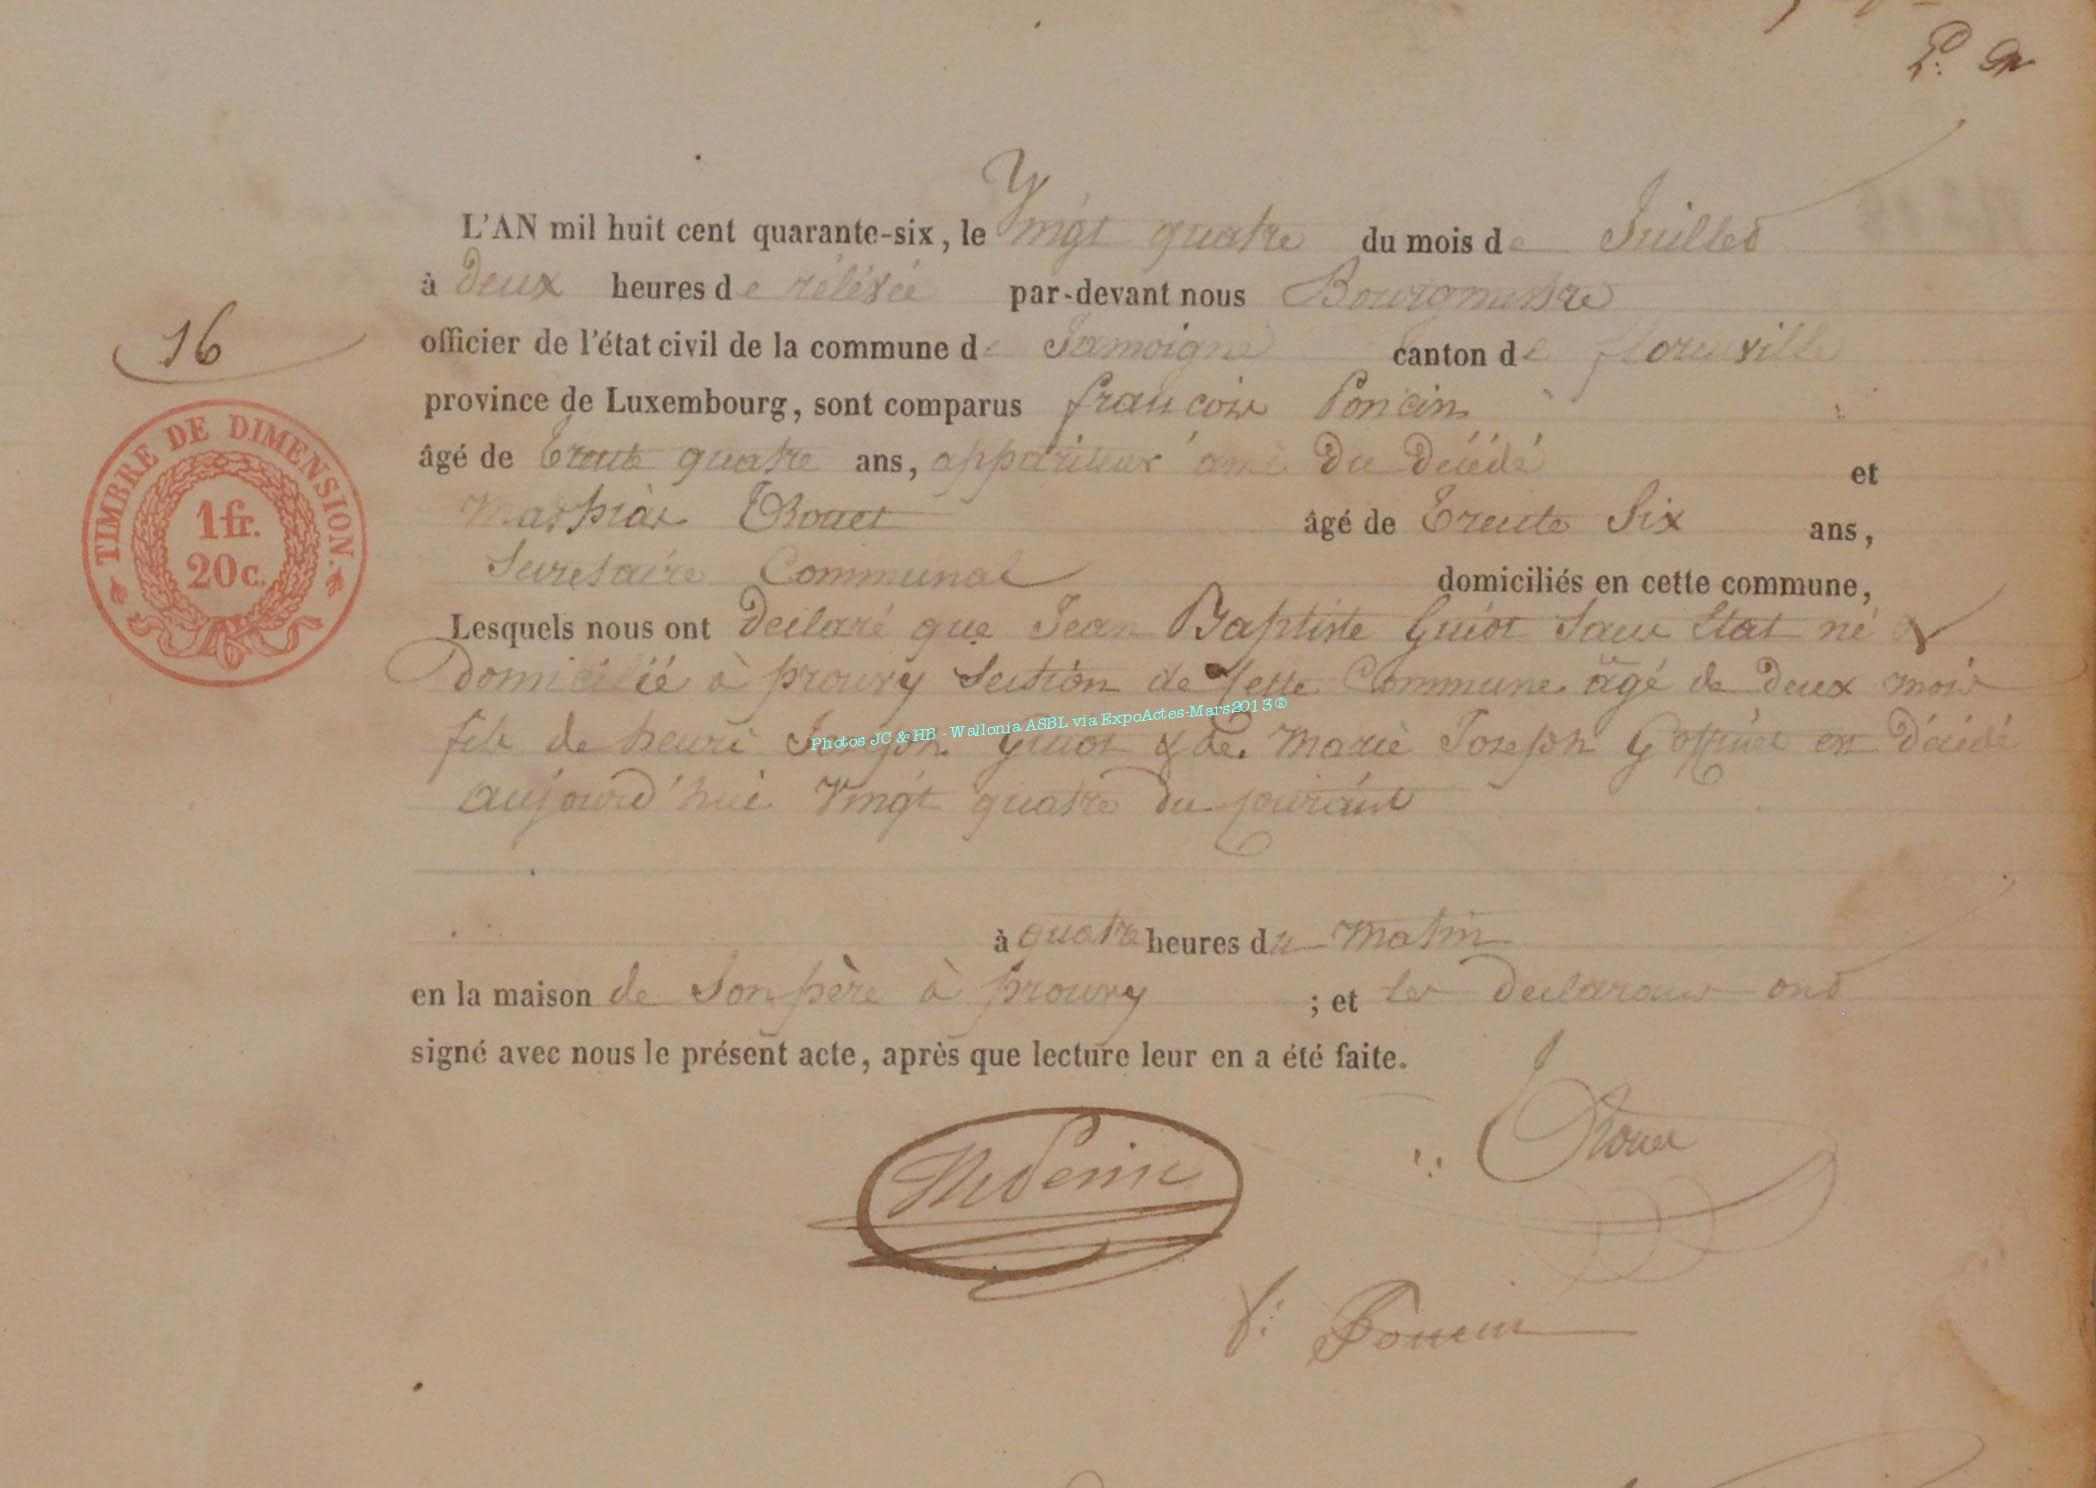 L'AN mil huit cent quarante-six, le Vingt quatre du mois de Juillet
à deux heures de rélévée par-devant nous Bourgmestre
16
officier de l'état civil de la commune de Jamoigne canton de florenville
province de Luxembourg, sont comparus françois Poncin
âgé de trente quatre ans, appariteur ami du décédé et
Mathias Thouet
âgé de trente Six ans,
Secretaire Communal domiciliés en cette commune,
Lesquels nous ont declaré que Jean Baptiste Guiot Sans Etat né &
domicilié à prouvy Section de Cette Commune âgé de deux mois
fils de henri Joseph Guiot & de Marie Joseph Goffinet est décédé
aujourd'hui Vingt quatre du courant
à quatre heures du matin
en la maison de Son père à prouvy ; et les declarans ont
signé avec nous le présent acte, après que lecture leur en a été faite.
Thouet
f: Poncin
TIMBRE DE DIMENSION.
1 fr.
20 c.
Photos JC & HB - Wallonia ASBL via ExpoActes-Mars2013®